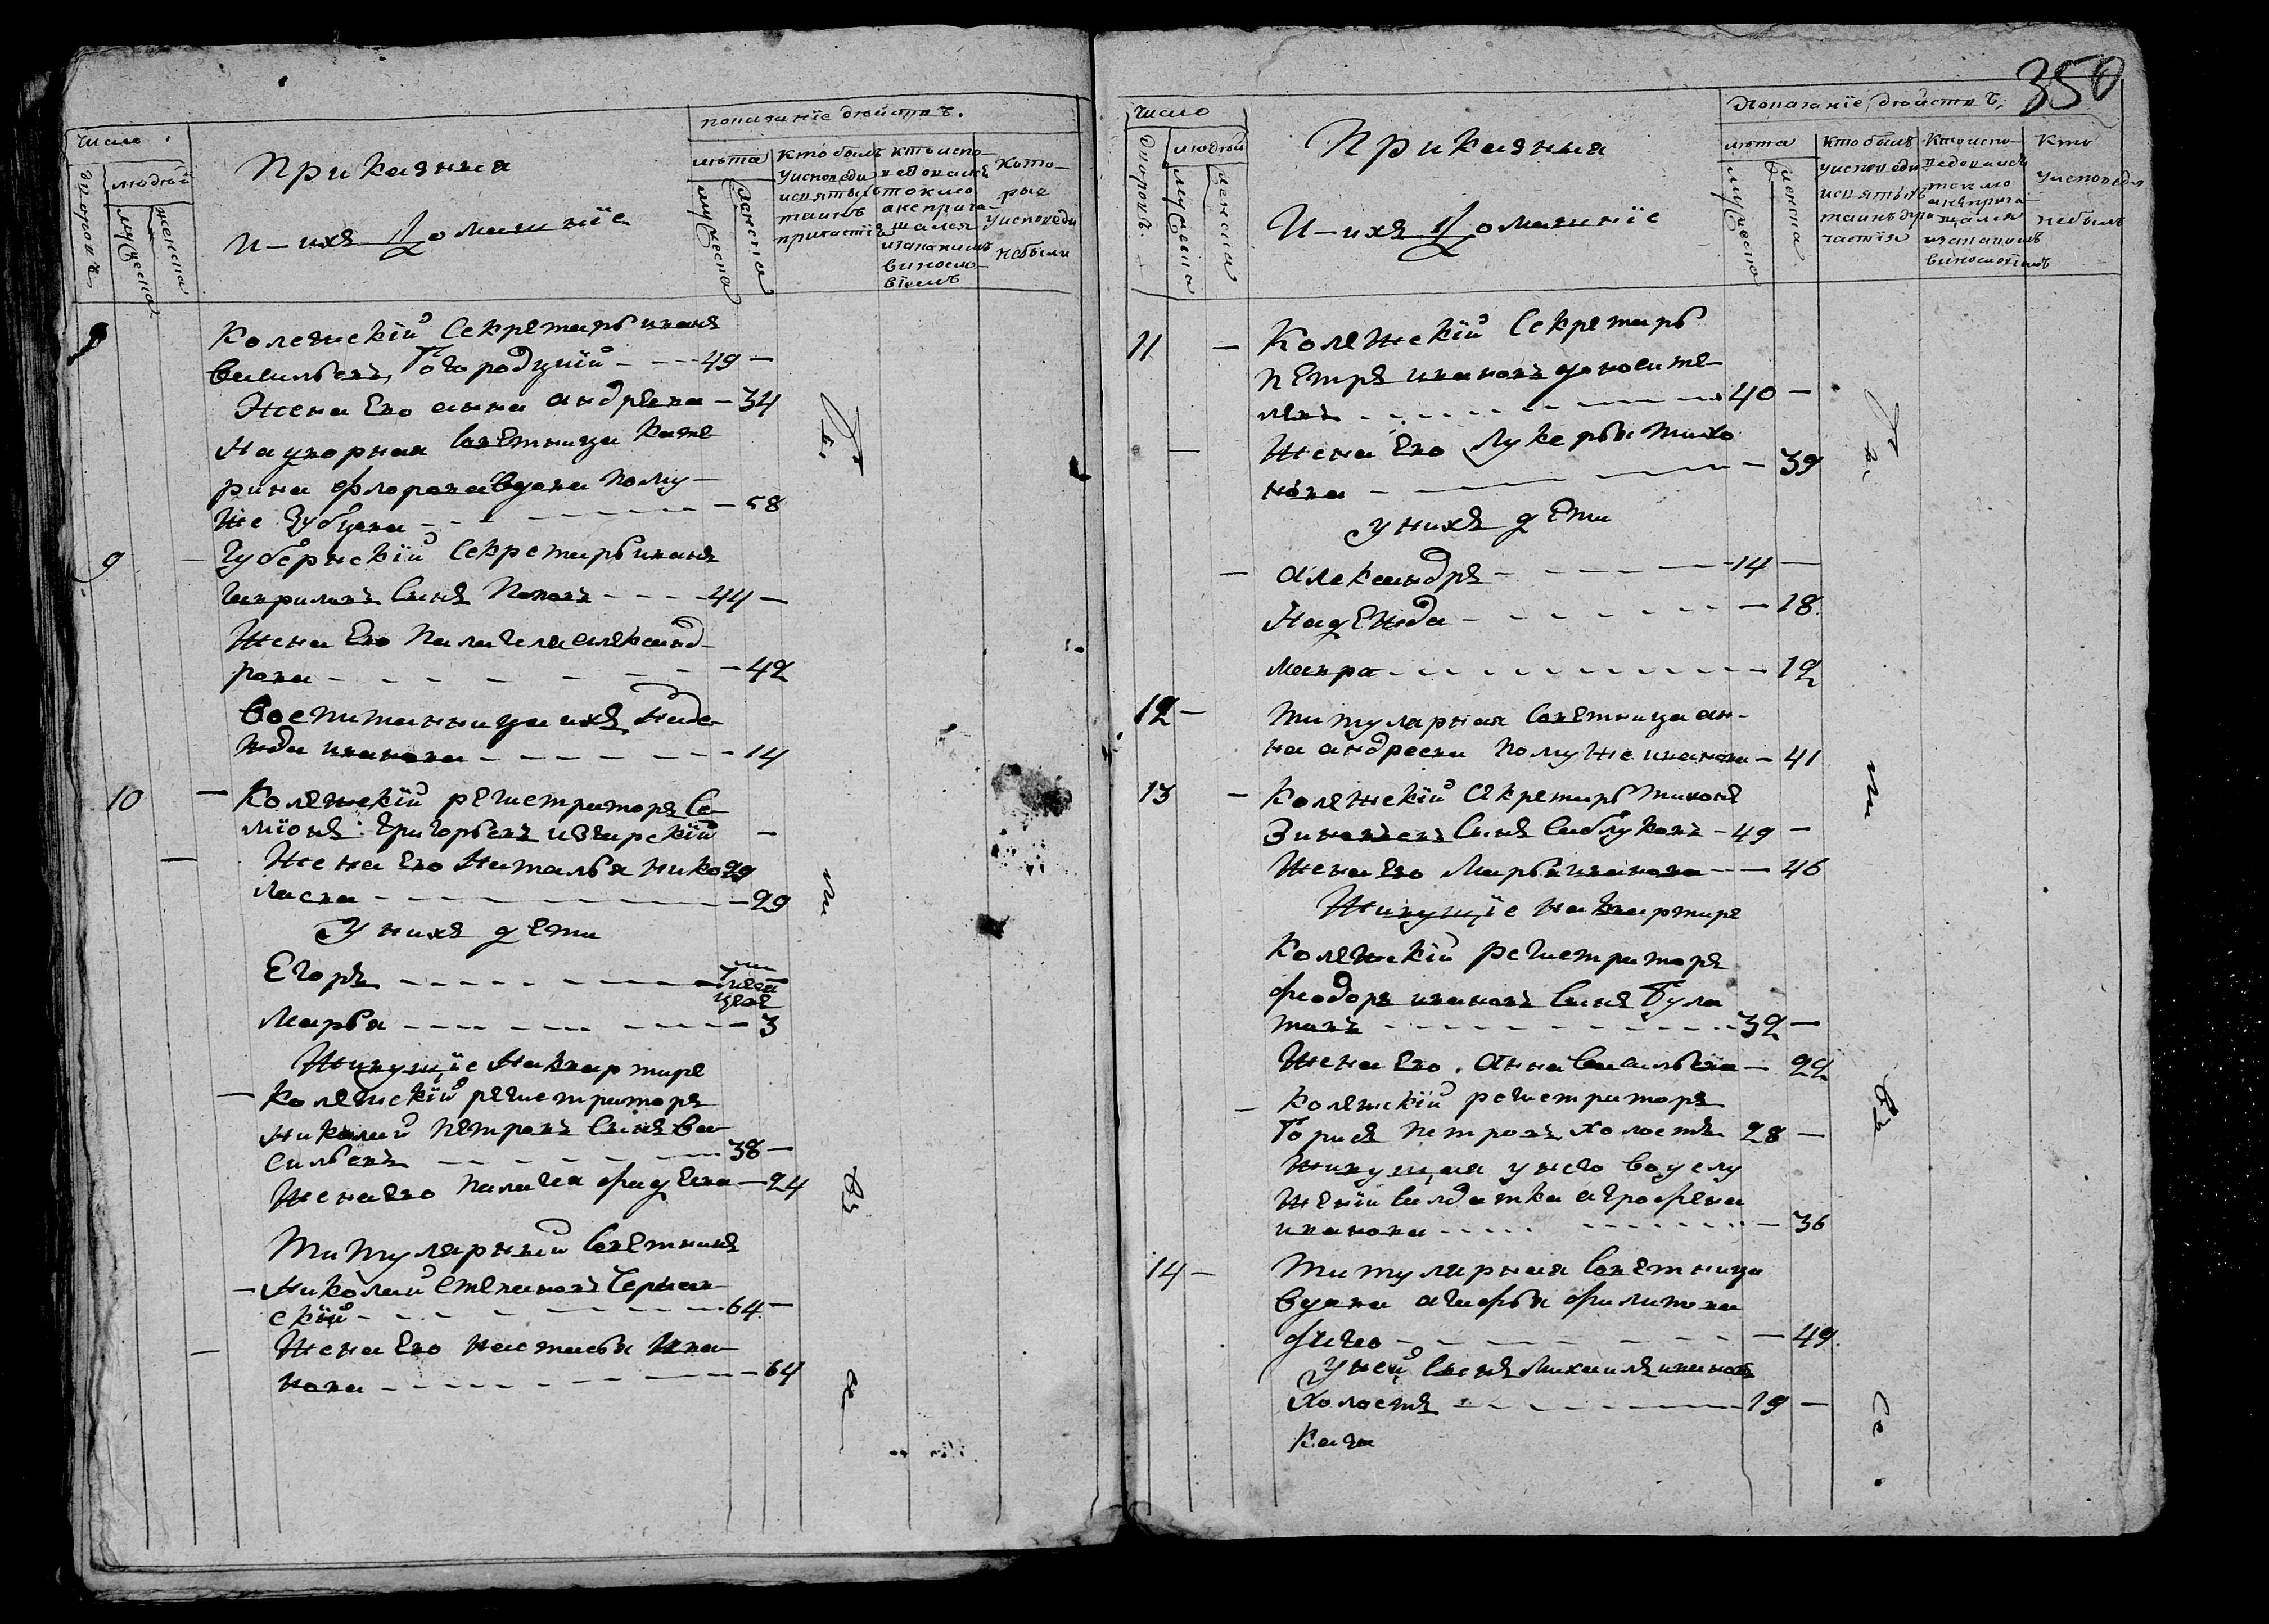 число
дворовъ
людей
мужеска
женска
Приказныя
и ихъ Домашнїе
показанїе дѣйствъ.
лѣта
мужеска
женска
кто былъ
у исповеди
и святыхъ
таинъ
причастїя
кто испо-
ведовалъ
токмо
а не прича-
щался
и за какимъ
виносло-
вїемъ
кото-
рые
у исповеди
не были
Колежскїй Секретарь иванъ
васильевъ Богородцкїй - - - 49 -
Жена Ево анна андрѣева - 34
Надворная Советница Кате-
рина Флорова вдова пому-
же Зубцова - - - 58
9 Губернскїй Секретарь иванъ
Гавриловъ Сынъ Поповъ - - - 44 -
Жена Ево Палагея александ-
рова - - - 42
воспитанница ихъ Наде-
жда иванова - - - 14
10 - Колежскїй регистраторъ Се-
мїонъ Григорьевъ -
- Жена Ево Наталья Нико 29
лаева - - - 29
У нихъ дети
Егоръ - - -
Марья - - - 3
Живущїе На квартире
- Колежскїй регистраторъ
Николай Петровъ Сынъ ва-
сильевъ - - - 38 -
Жена Ево Палагея Фадѣева - 24
Титулярный Советникъ
- Николай Степановъ Черняв-
скїй - - - 64 -
- Жена Ево Настасья Ива-
нова - - - 64
350
число
дворовъ
людей
мужеска
женска
Приказныя
И ихъ Домашнїе
Показанїе дѣйствъ.
лѣта
мужеска
женска
кто былъ
у исповеди
и святыхъ
таинъ при
частїя
кто испо-
ведовался
токмо
а не прича-
щался
и за какимъ
винословїемъ
кто
у исповеди
не былъ
11 - Колежскїй Секретарь
Петръ ивановъ
левъ - - - 40 -
- Жена Ево Лукерья Тихо
нова - - - 39
у нихъ дети
- александръ - - - 14 -
Надежда - - - 18
Мавра - - - 12
12 - Титулярная Советница ан-
на андреева помуже иванова - 41
13 - Колежскїй Секретарь Тихонъ
Зиновьевъ Сынъ Саблуковъ - 49 -
Жена Ево Марья иванова - - 46
Живущїе на квартире
Колежскїй регистраторъ
Феодоръ ивановъ Сынъ Була
товъ - - - 32 -
Жена Ево Анна васильева - 22
- Колежскїй регистраторъ
Борисъ Петровъ холостъ 28 -
Живущая у него во услу
женїи Салдатка аграфена
иванова - - - 36
14 - Титулярная Советница
вдова агафья Филипова
- - - 49
у ней Сынъ Михаилъ ивановъ
холостъ - - - 19 -